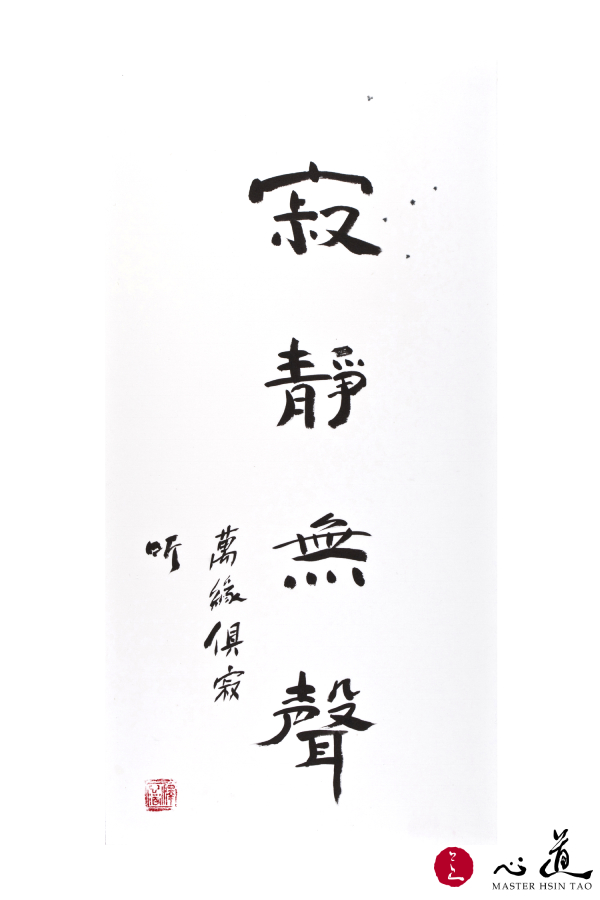 寂靜無聲
萬緣俱寂
听
心道
MASTER HSIN TAO